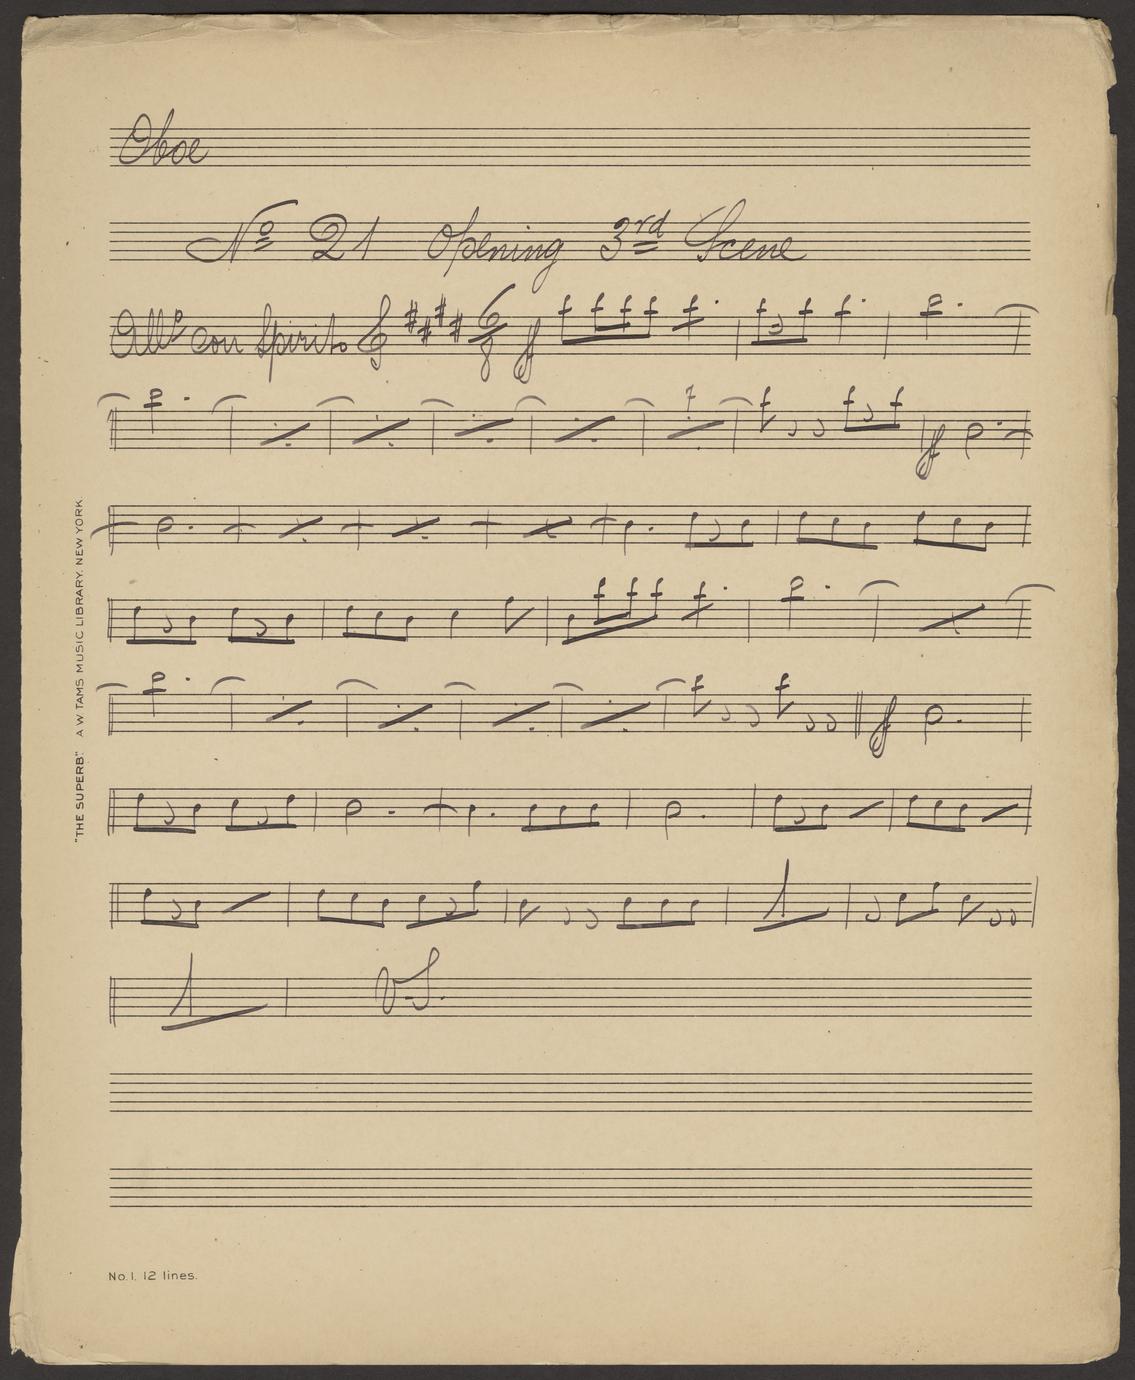 Oboe
No 21 Opening 3rd Scene
Allo con Spirito 6/8 ff
7
ff
ff
1
1 V.S.
"THE SUPERB". A W TAMS MUSIC LIBRARY. NEW YORK.
No.1. 12 lines.